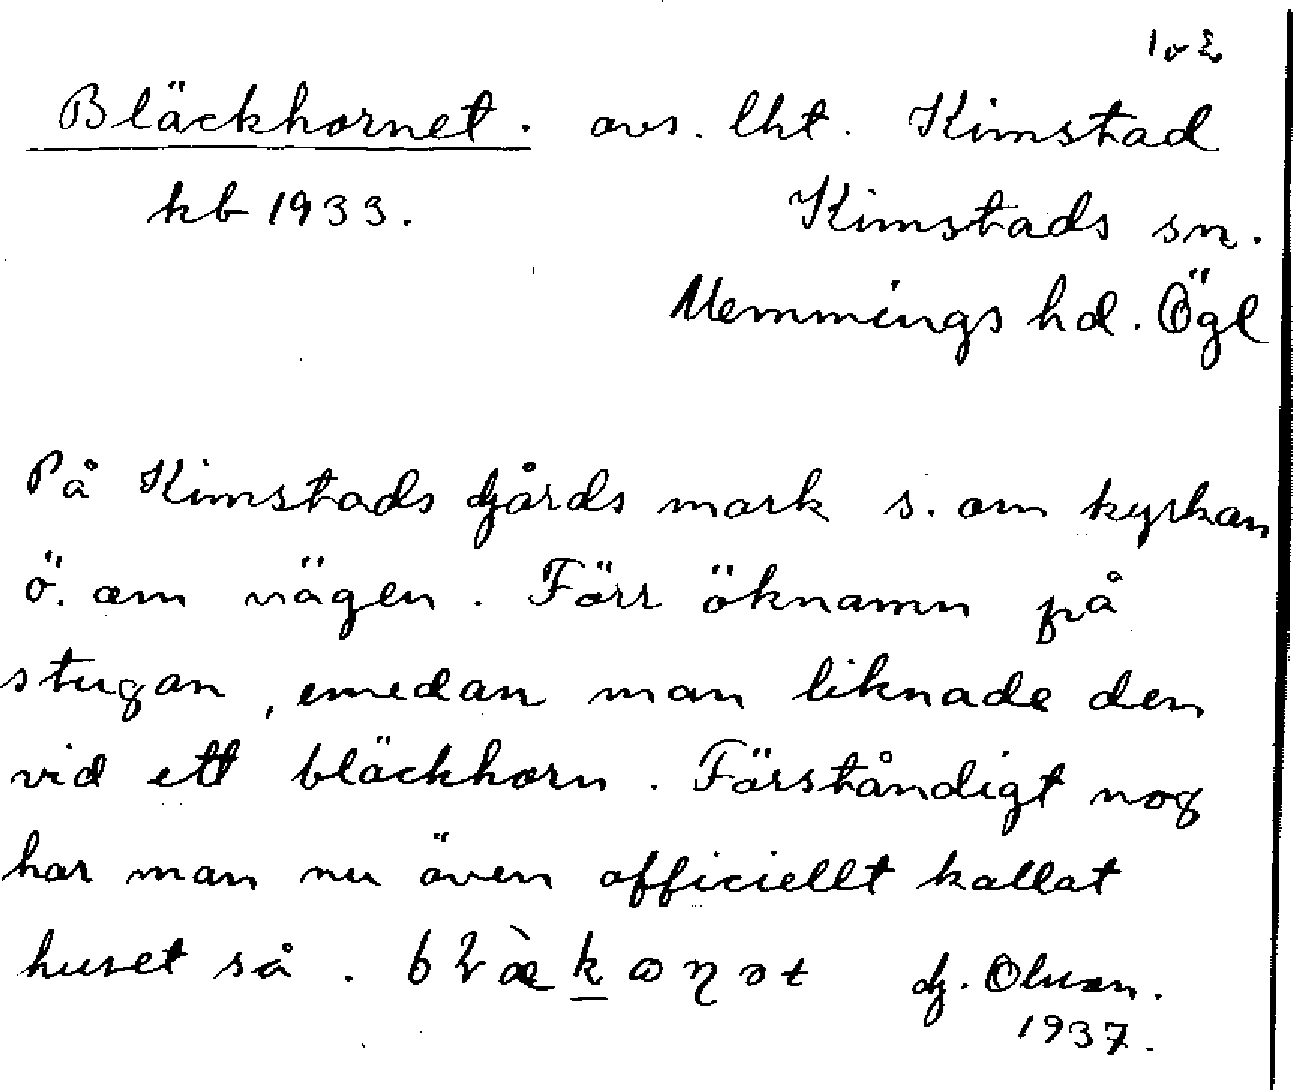 1 o 2
Bläckhornet. avs. lht. Kimstad
kb 1933. Kimstads sn.
Memmings hd. Ögl
På Kimstads gårds mark s. om kyrkan
ö. om vägen. Förr öknamn på
stugan, emedan man liknade den
vid ett bläckhorn. Förståndigt nog
har man nu även officiellt kallat
huset så.
G. Olsson.
1937.